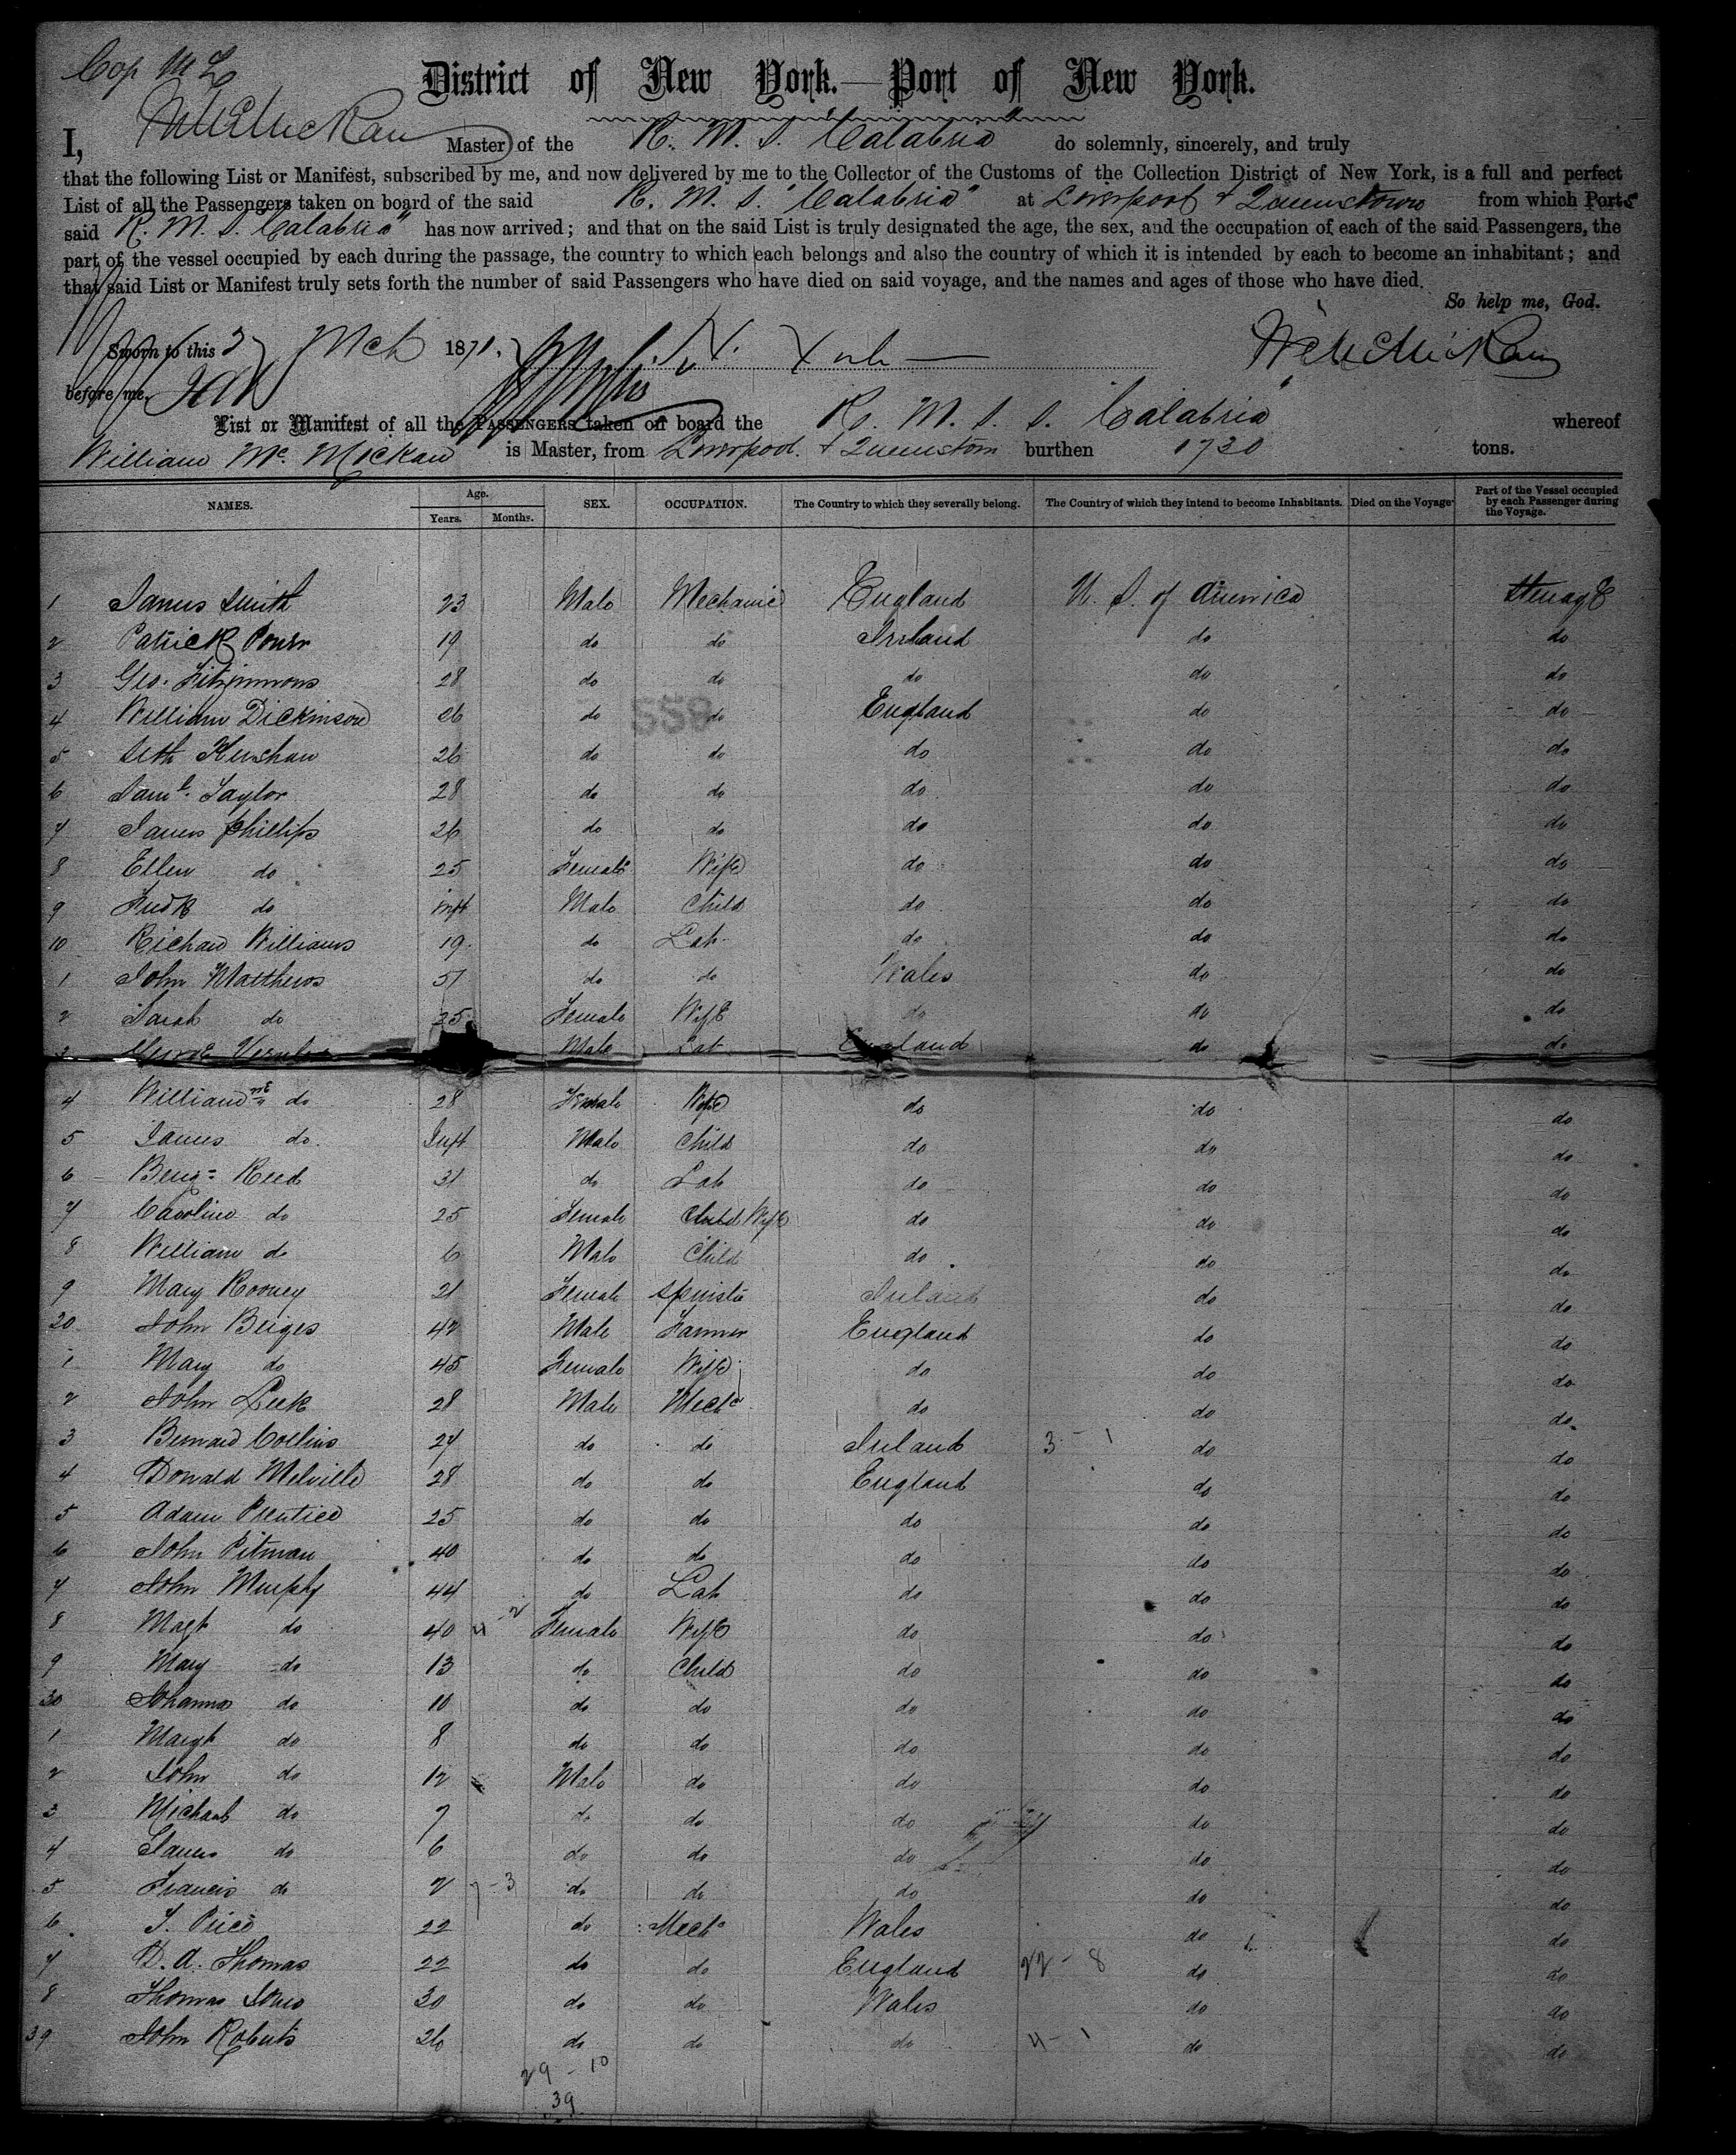 Cop M L
District of New York.—Port of New York.
I, Wm McMickan Master of the R. M. S. "Calabria" do solemnly, sincerely, and truly
that the following List or Manifest, subscribed by me, and now delivered by me to the Collector of the Customs of the Collection District of New York, is a full and perfect
List of all the Passengers taken on board of the said R. M. S. "Calabria" at Liverpool & Queenstown from which Ports
said R. M. S. Calabria" has now arrived; and that on the said List is truly designated the age, the sex, and the occupation of each of the said Passengers, the
part of the vessel occupied by each during the passage, the country to which each belongs and also the country of which it is intended by each to become an inhabitant; and
that said List or Manifest truly sets forth the number of said Passengers who have died on said voyage, and the names and ages of those who have died.
So help me, God.
Sworn to this 3 Mch 1871. Wm McMickan
before me,
List or Manifest of all the PASSENGERS taken on board the R. M. S. S. Calabria" whereof
William Mc. Mickan is Master, from Liverpool. & Queenstown burthen 1730 tons.
NAMES. Age. Years. Months. SEX. OCCUPATION. The Country to which they severally belong. The Country of which they intend to become Inhabitants. Died on the Voyage Part of the Vessel occupied by each Passenger during the Voyage.
1 James Smith 23 Male Mechanic England U. S. of America Steerage
2 Patrick Power 19 do do Ireland do do
3 Geo. Fitzsimmons 28 do do do do do
559
4 William Dickinson 26 do do England do do
5 Seth Kershaw 26 do do do do do
6 Saml. Taylor 28 do do do do do
7 James Phillips 26 do do do do do
8 Ellen do 25 Female Wife do do do
9 Fredk do inft Male Child do do do
10 Richard Williams 19 do Lab. do do do
1 John Matthews 51 do do Wales do do
2 Sarah do 25 Female Wife do do do
3 George Male Lab England do do
4 Williamna do 28 Female Wife do do do
5 James do. Inft Male Child do do do
6 Benj= Reed 31 do Lab do do do
7 Caroline do 25 Female Child Wife do do do
8 William do 6 Male Child do do do
9 Mary Rooney 21 Female Spinster Ireland do do
20 John Beiges 42 Male Farmer England do do
1 Mary do 45 Female Wife do do do
2 John Leek 28 Male Mechc do do do
3 Bernard Collins 27 do do Ireland 3 - 1 do do
4 Donald Melville 28 do do England do do
5 Adam Prentice 25 do do do do do
6 John Pitman 40 do do do do do
7 John Murphy 44 do Lab do do do
8 Magt do 40 4 - 2 Female Wife do do do
9 Mary do 13 do Child do do do
30 Johanna do 10 do do do do do
1 Margt do 8 do do do do do
2 John do 12 Male do do do do
3 Michael do 7 do do do do do
4 James do 6 do do do do do
5 Francis do 2 7 - 3 do do do do do
6 T. Price 22 do Mechc Wales do do
7 D. A. Thomas 22 do do England 22 - 8 do do
8 Thomas Jones 30 do do Wales do do
39 John Roberts 26 do do do 4 - 1 do do
29 - 10
39